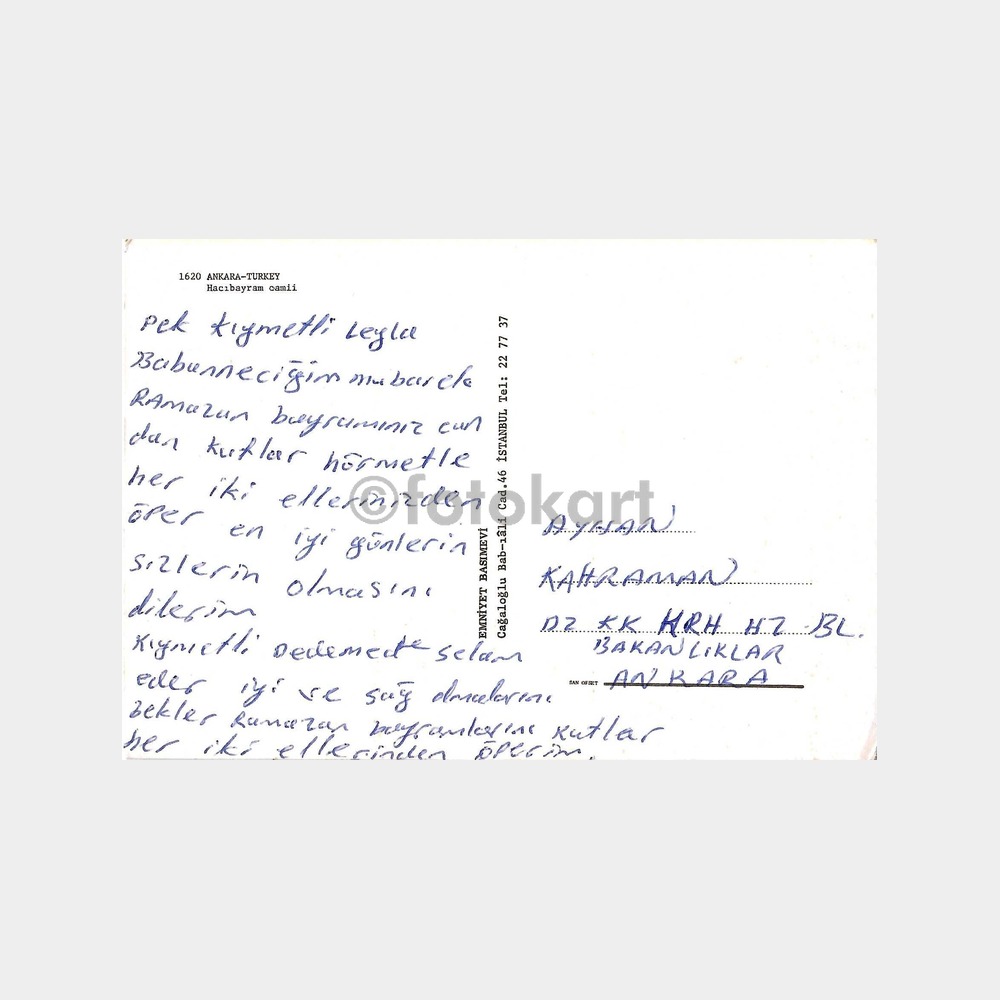 1620 ANKARA-TURKEY
Hacıbayram camii
Pek kıymetli Leyla
Babanneciğim mubarek
RAmazan bayramınız can
dan kutlar hörmetle
her iki ellerinizden
öper en iyi günlerin
sizlerin olmasını
dilerim
Kıymetli Dedemede selam
eder iyi ve sağ olmalarını
bekler Ramazan bayramlarını kutlar
her iki ellerinden öperim.
EMNİYET BASIMEVİ
Cağaloğlu Bab-ıâli Cad.46 İSTANBUL Tel: 22 77 37
©fotokart
AYHAN
KAHRAMAN
DZ KK KRH HZ BL.
BAKANLIKLAR
SAN OFSET ANKARA